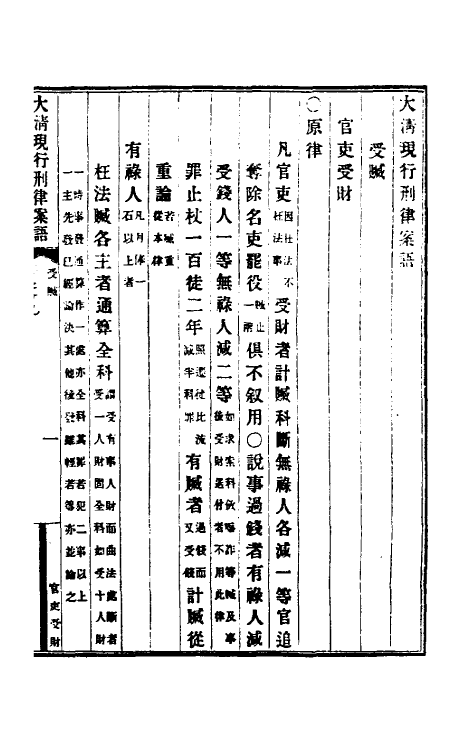 大清現行刑律案語
受贓
官吏受財
○原律
凡官吏因枉法不枉法事受財者計贓科斷無祿人各減一等官追
奪除名吏罷役贓止一兩俱不叙用○說事過錢者有祿人減
受錢人一等無祿人減二等如求索科斂嚇詐等贓及事後受財過付者不用此律
罪止杖一百徒二年照遷徙比流減半科罪有贓者過錢而又受錢計贓從
重論若贓重從本律
有祿人凡月俸一石以上者
枉法贓各主者通算全科謂受有事人財而曲法處斷者受一人財固全科如受十人財
一時事發通算作一處亦全科其罪若犯二事以上
一主先發已經論決其他後發雖輕者等亦並論之
大清現行刑律案語
受贓
一
官吏受財